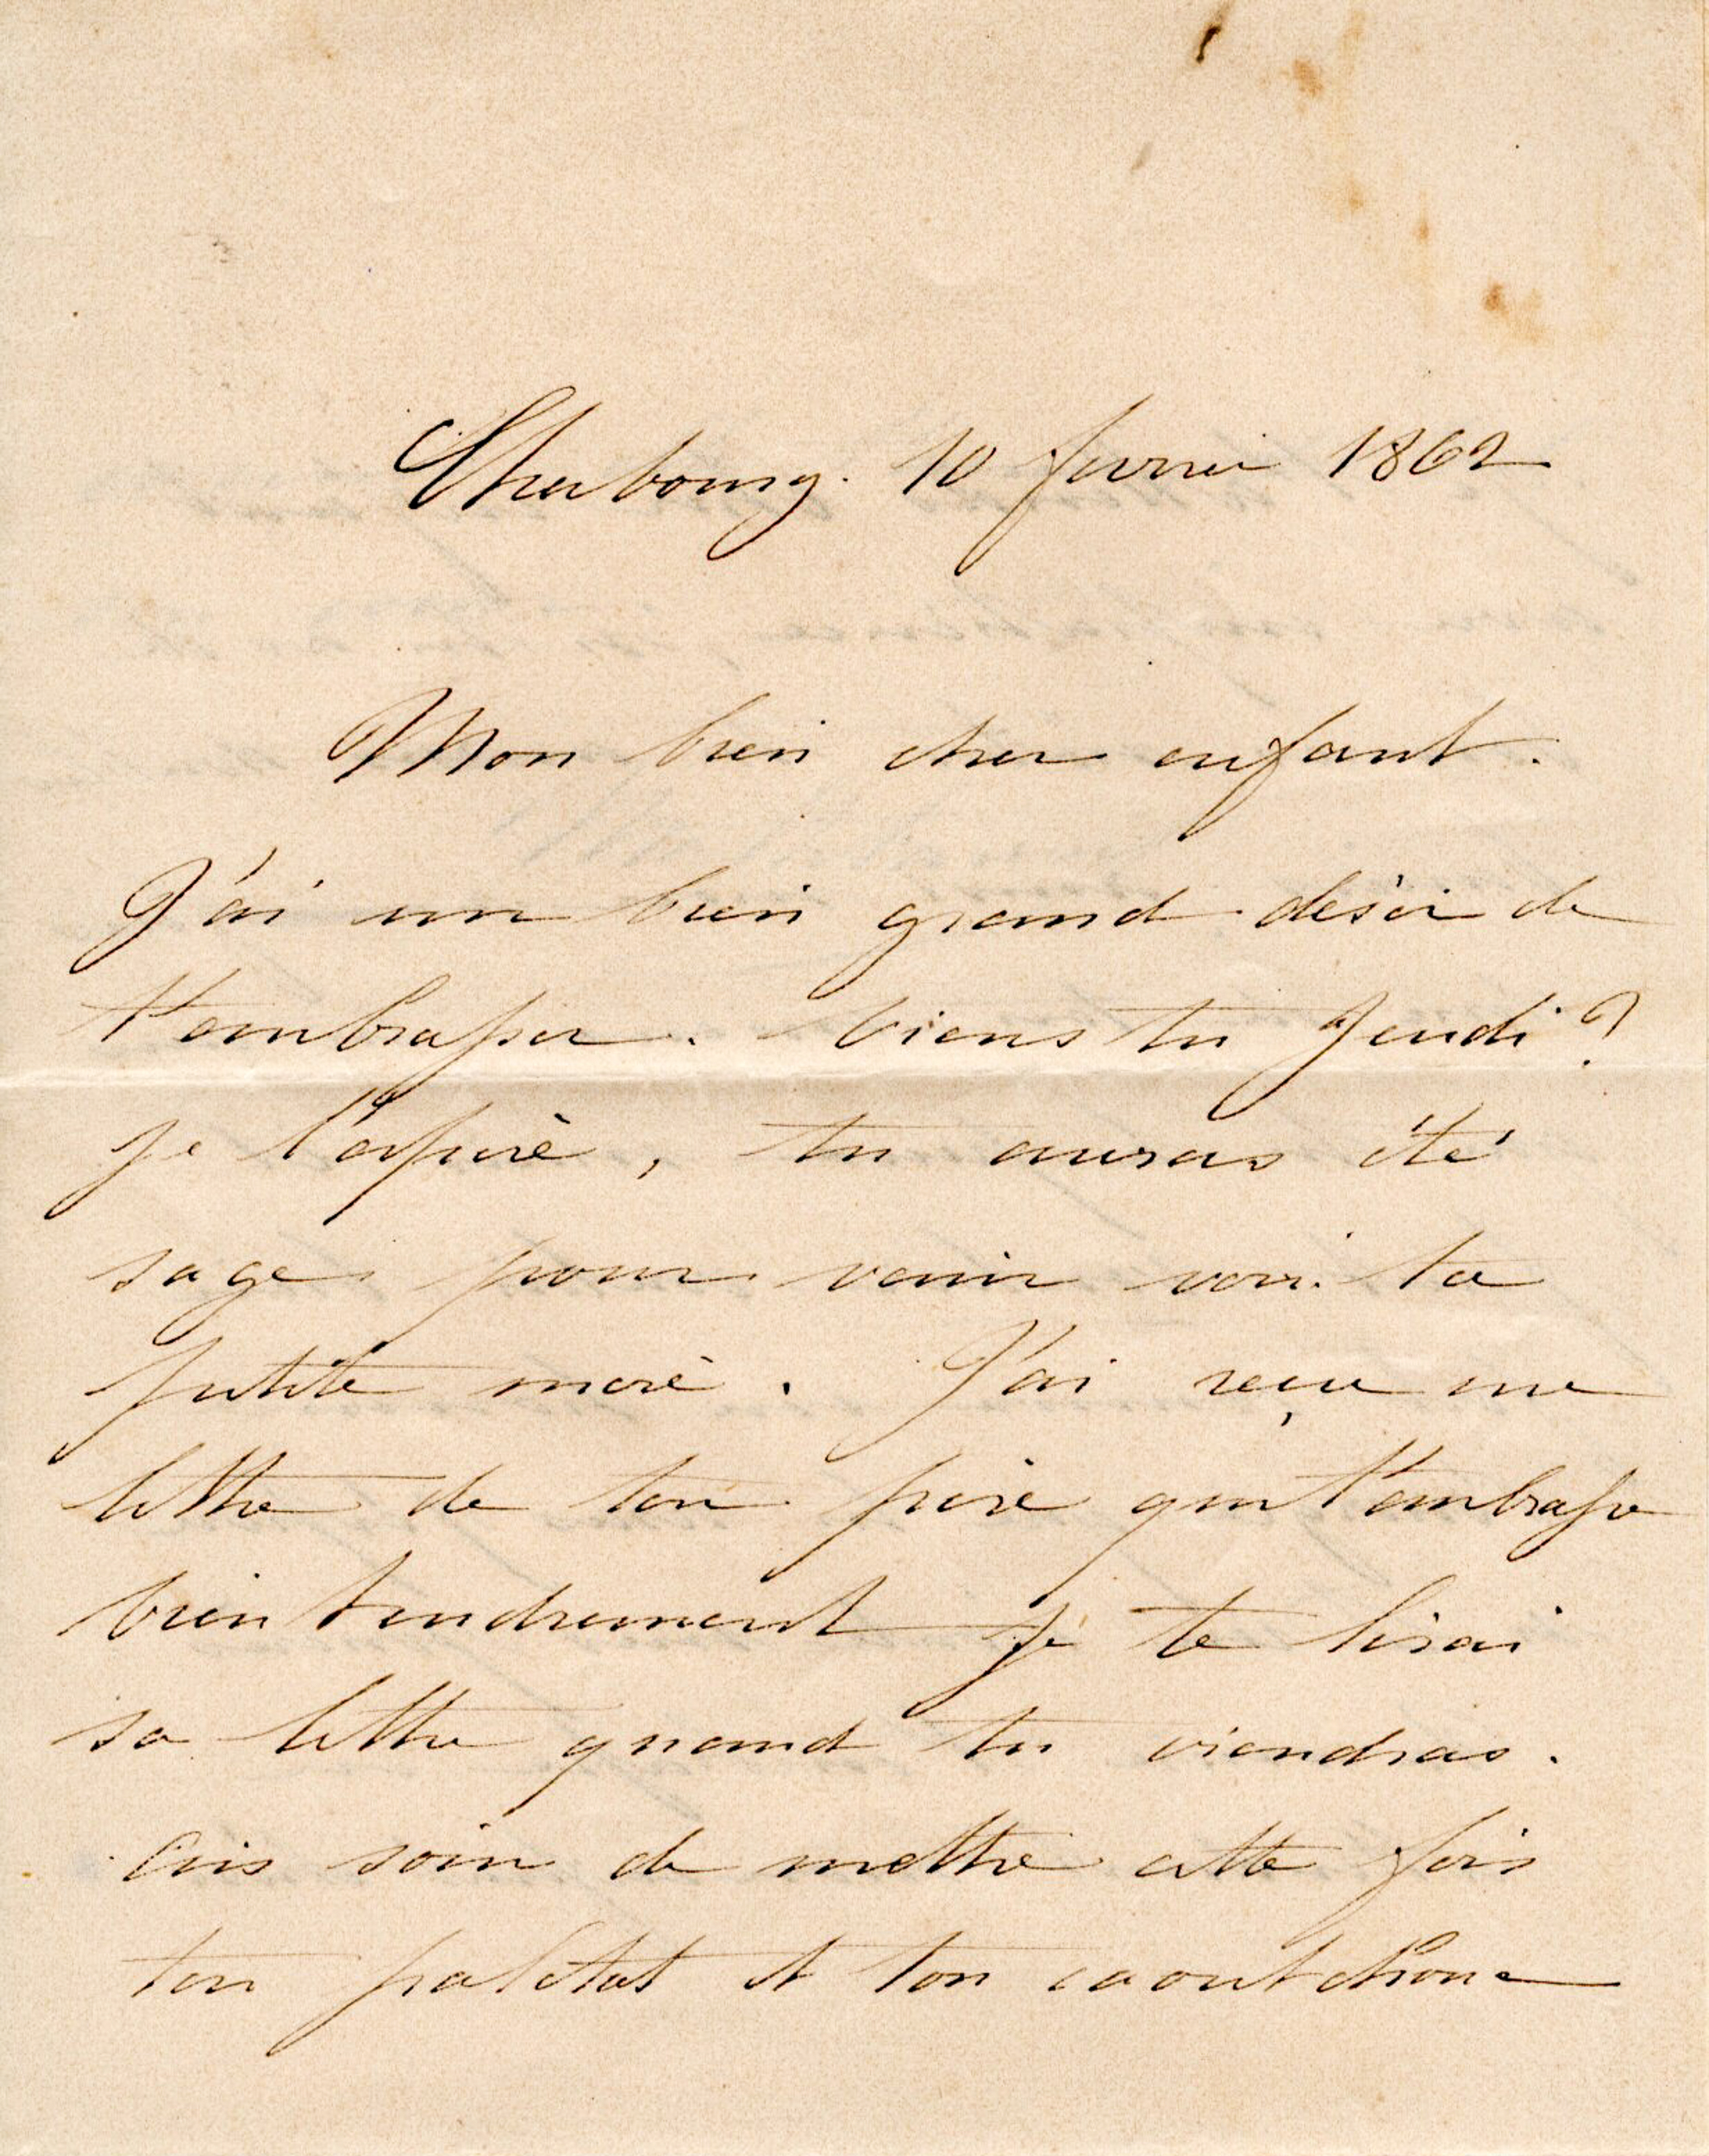 Cherbourg. 10 fevrier 1862
Mon bien cher enfant.
J'ai un bien grand désir de
t'embrasser. Viens tu Jeudi ?
je l'espère, tu auras été
sage pour venir voir ta
petite mère. J'ai reçu une
lettre de ton père qui t'embrasse
bien tendrement je te lirai
sa lettre quand tu viendras.
Ais soin de mettre cette fois
ton paletot et ton caoutchouc